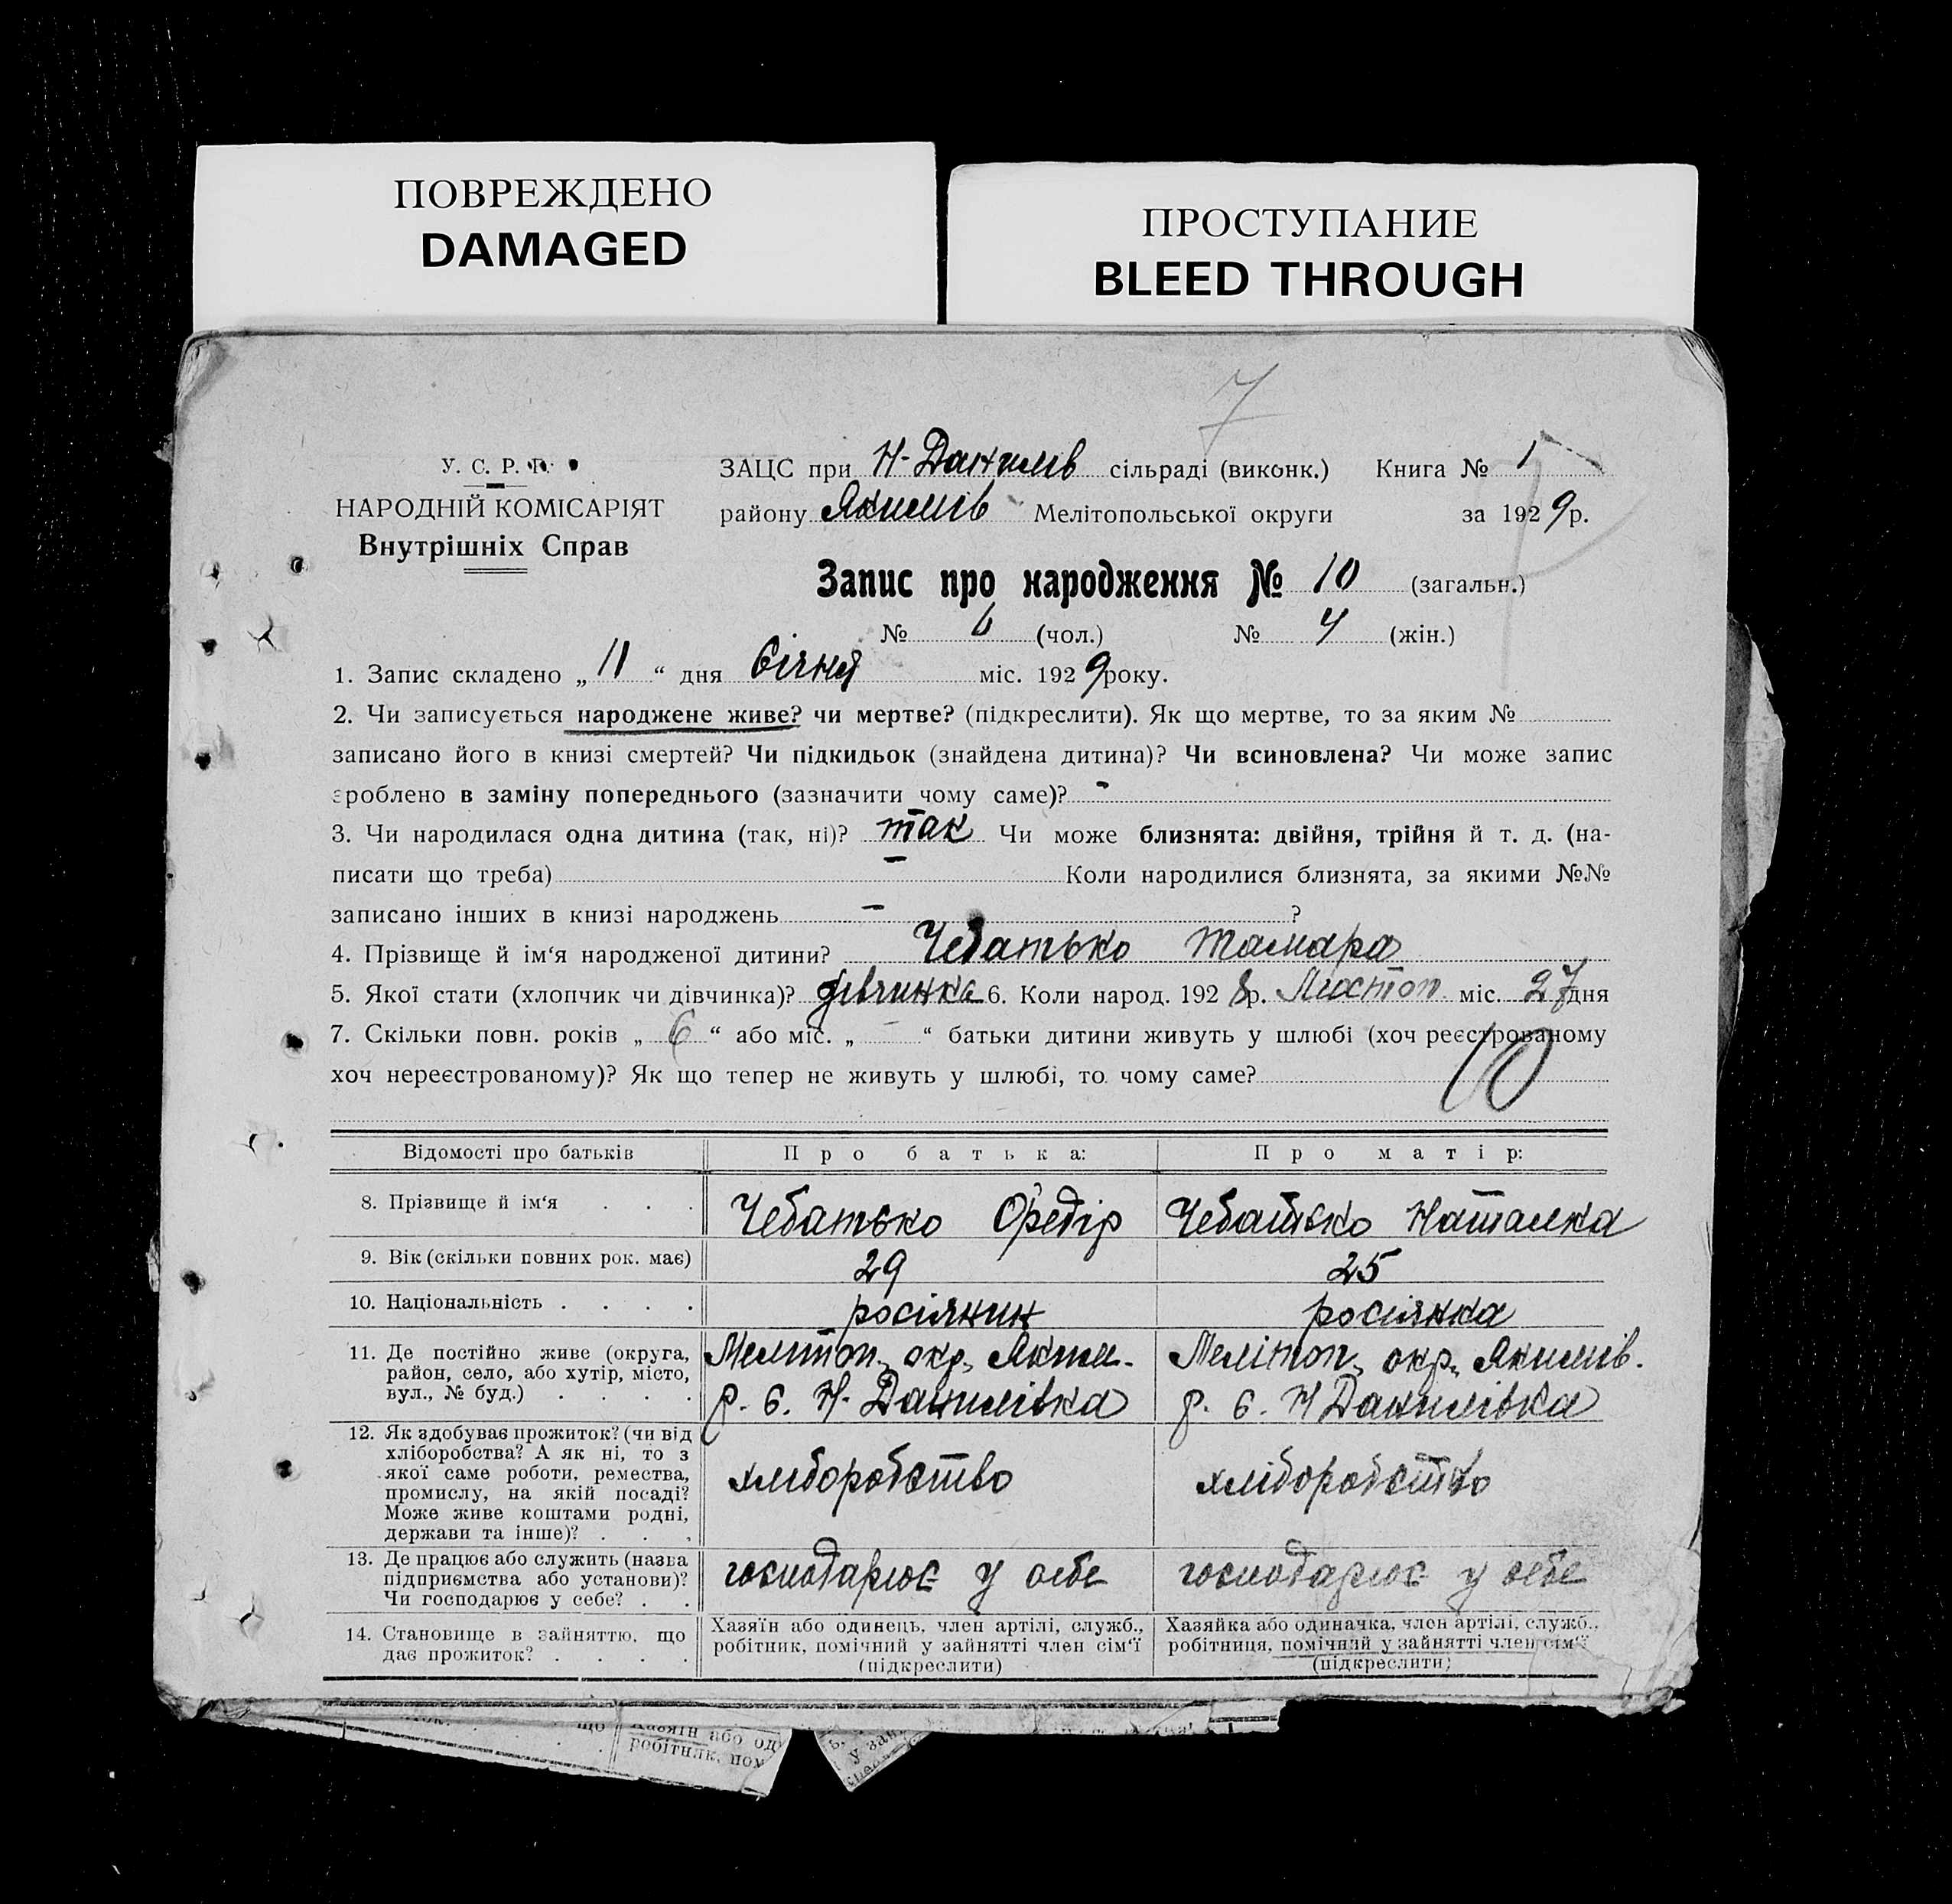 ПОВРЕЖДЕНО
DAMAGED
ПРОСТУПАНИЕ
BLEED THROUGH
7
У. С. Р. Р.
НАРОДНІЙ КОМІСАРІЯТ
Внутрішніх Справ
ЗАЦС при Н-Данилів сільраді (виконк.) Книга № 1
району Якимів Мелітопольської округи за 1929р.
Запис про народження № 10 (загальн.)
№ 6 (чол.) № 4 (жін.)
1. Запис складено „11“ дня Січня міс. 1929року.
2. Чи записується народжене живе? чи мертве? (підкреслити). Як що мертве, то за яким №
записано його в книзі смертей? Чи підкидьок (знайдена дитина)? Чи всиновлена? Чи може запис
зроблено в заміну попереднього (зазначити чому саме)? -
3. Чи народилася одна дитина (так, ні)? так Чи може близнята: двійня, трійня й т. д. (на-
писати що треба) - Коли народилися близнята, за якими №№
записано інших в книзі народжень - ?
4. Прізвище й ім‘я народженої дитини? Чебатько Тамара
5. Якої стати (хлопчик чи дівчинка)? дівчинка 6. Коли народ. 1928р. Листоп. міс. 27дня
7. Скільки повн. років „6“ або міс. „-“ батьки дитини живуть у шлюбі (хоч реєстрованому
хоч нереєстрованому)? Як що тепер не живуть у шлюбі, то чому саме?
10
Відомості про батьків Про батька: Про матір:
8. Прізвище й ім‘я . . . Чебатько Федір Чебатько Наталка
9. Вік (скільки повних рок. має) 29 25
10. Національність . . . . росіянин росіянка
11. Де постійно живе (округа, район, село, або хутір, місто, вул., № буд.) . . . .
Мелітоп. окр. Яким. р. с. Н-Данилівка
Мелітоп. окр. Якимів. р. с. Н Данилівка
12. Як здобуває прожиток? (чи від хліборобства? А як ні, то з якої саме роботи, ремества, промислу, на якій посаді? Може живе коштами родні, держави та інше)? . . .
хліборобство хліборобство
13. Де працює або служить (назва підприємства або установи)? Чи господарює у себе? . .
господарює у себе господарює у себе
14. Становище в зайняттю, що дає прожиток? . . . .
Хазяїн або одинець, член артілі, служб., робітник, помічний у зайнятті член сім‘ї (підкреслити)
Хазяйка або одиначка, член артілі, служб., робітниця, помічний у зайнятті член сім‘ї (підкреслити)
що Хазяїн або од
робітник, пом
у зай